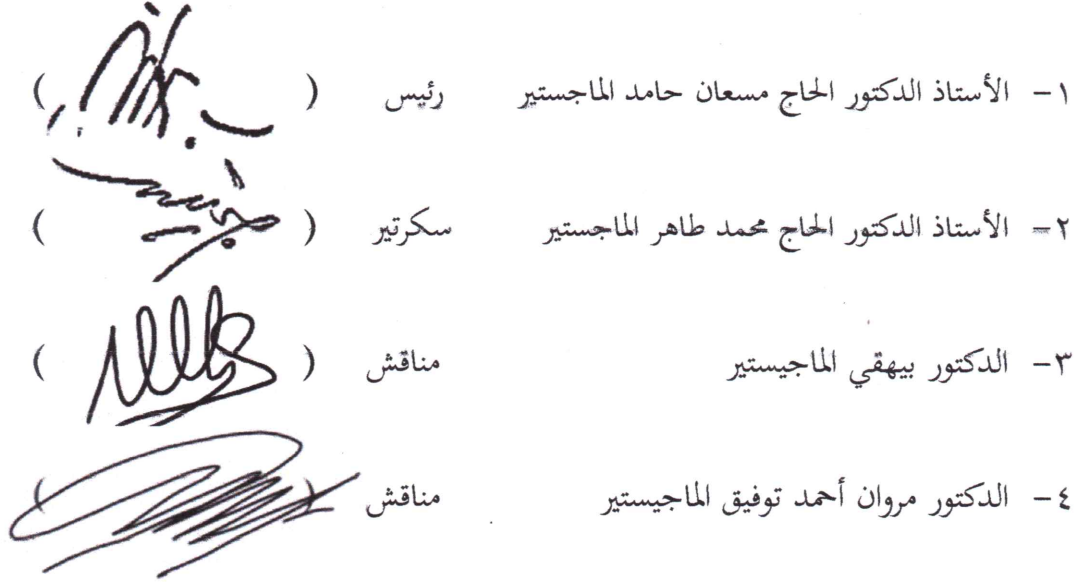 ١- الأستاذ الدكتور الحاج مسعان حامد الماجستير رئيس ( )
٢- الأستاذ الدكتور الحاج محمد طاهر الماجستير سكرتير ( )
٣- الدكتور بيهقي الماجيستير مناقش ( )
٤- الدكتور مروان أحمد توفيق الماجيستير مناقش ( )